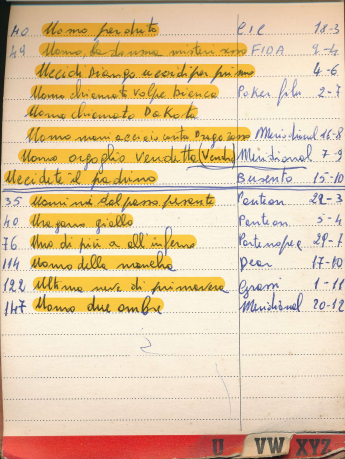 40 Uomo perduto CIC 18-3
49 Uomo, la donna misteriosa FIDA 9-4
Uccidi Django uccidi per primo 4-6
Uomo chiamato Volpe Bianca Poker film 2-7
Uomo chiamato Dakota
Uomo mani acciaio contro Drago rosso Meridional 16-8
Uomo orgoglio Vendetta (Vendo) Meridional 7-9
Uccidete il padrino Busento 15-10
35 Uomini dal passo pesante Panteon 22-3
40 Uragano giallo Panteon 5-4
76 Uno di più all'inferno Partenopea 29-7
114 Uomo della mancha Dear 17-10
122 Ultima neve di primavera Grassi 1-11
147 Uomo due ombre Meridional 20-12
U VW XYZ